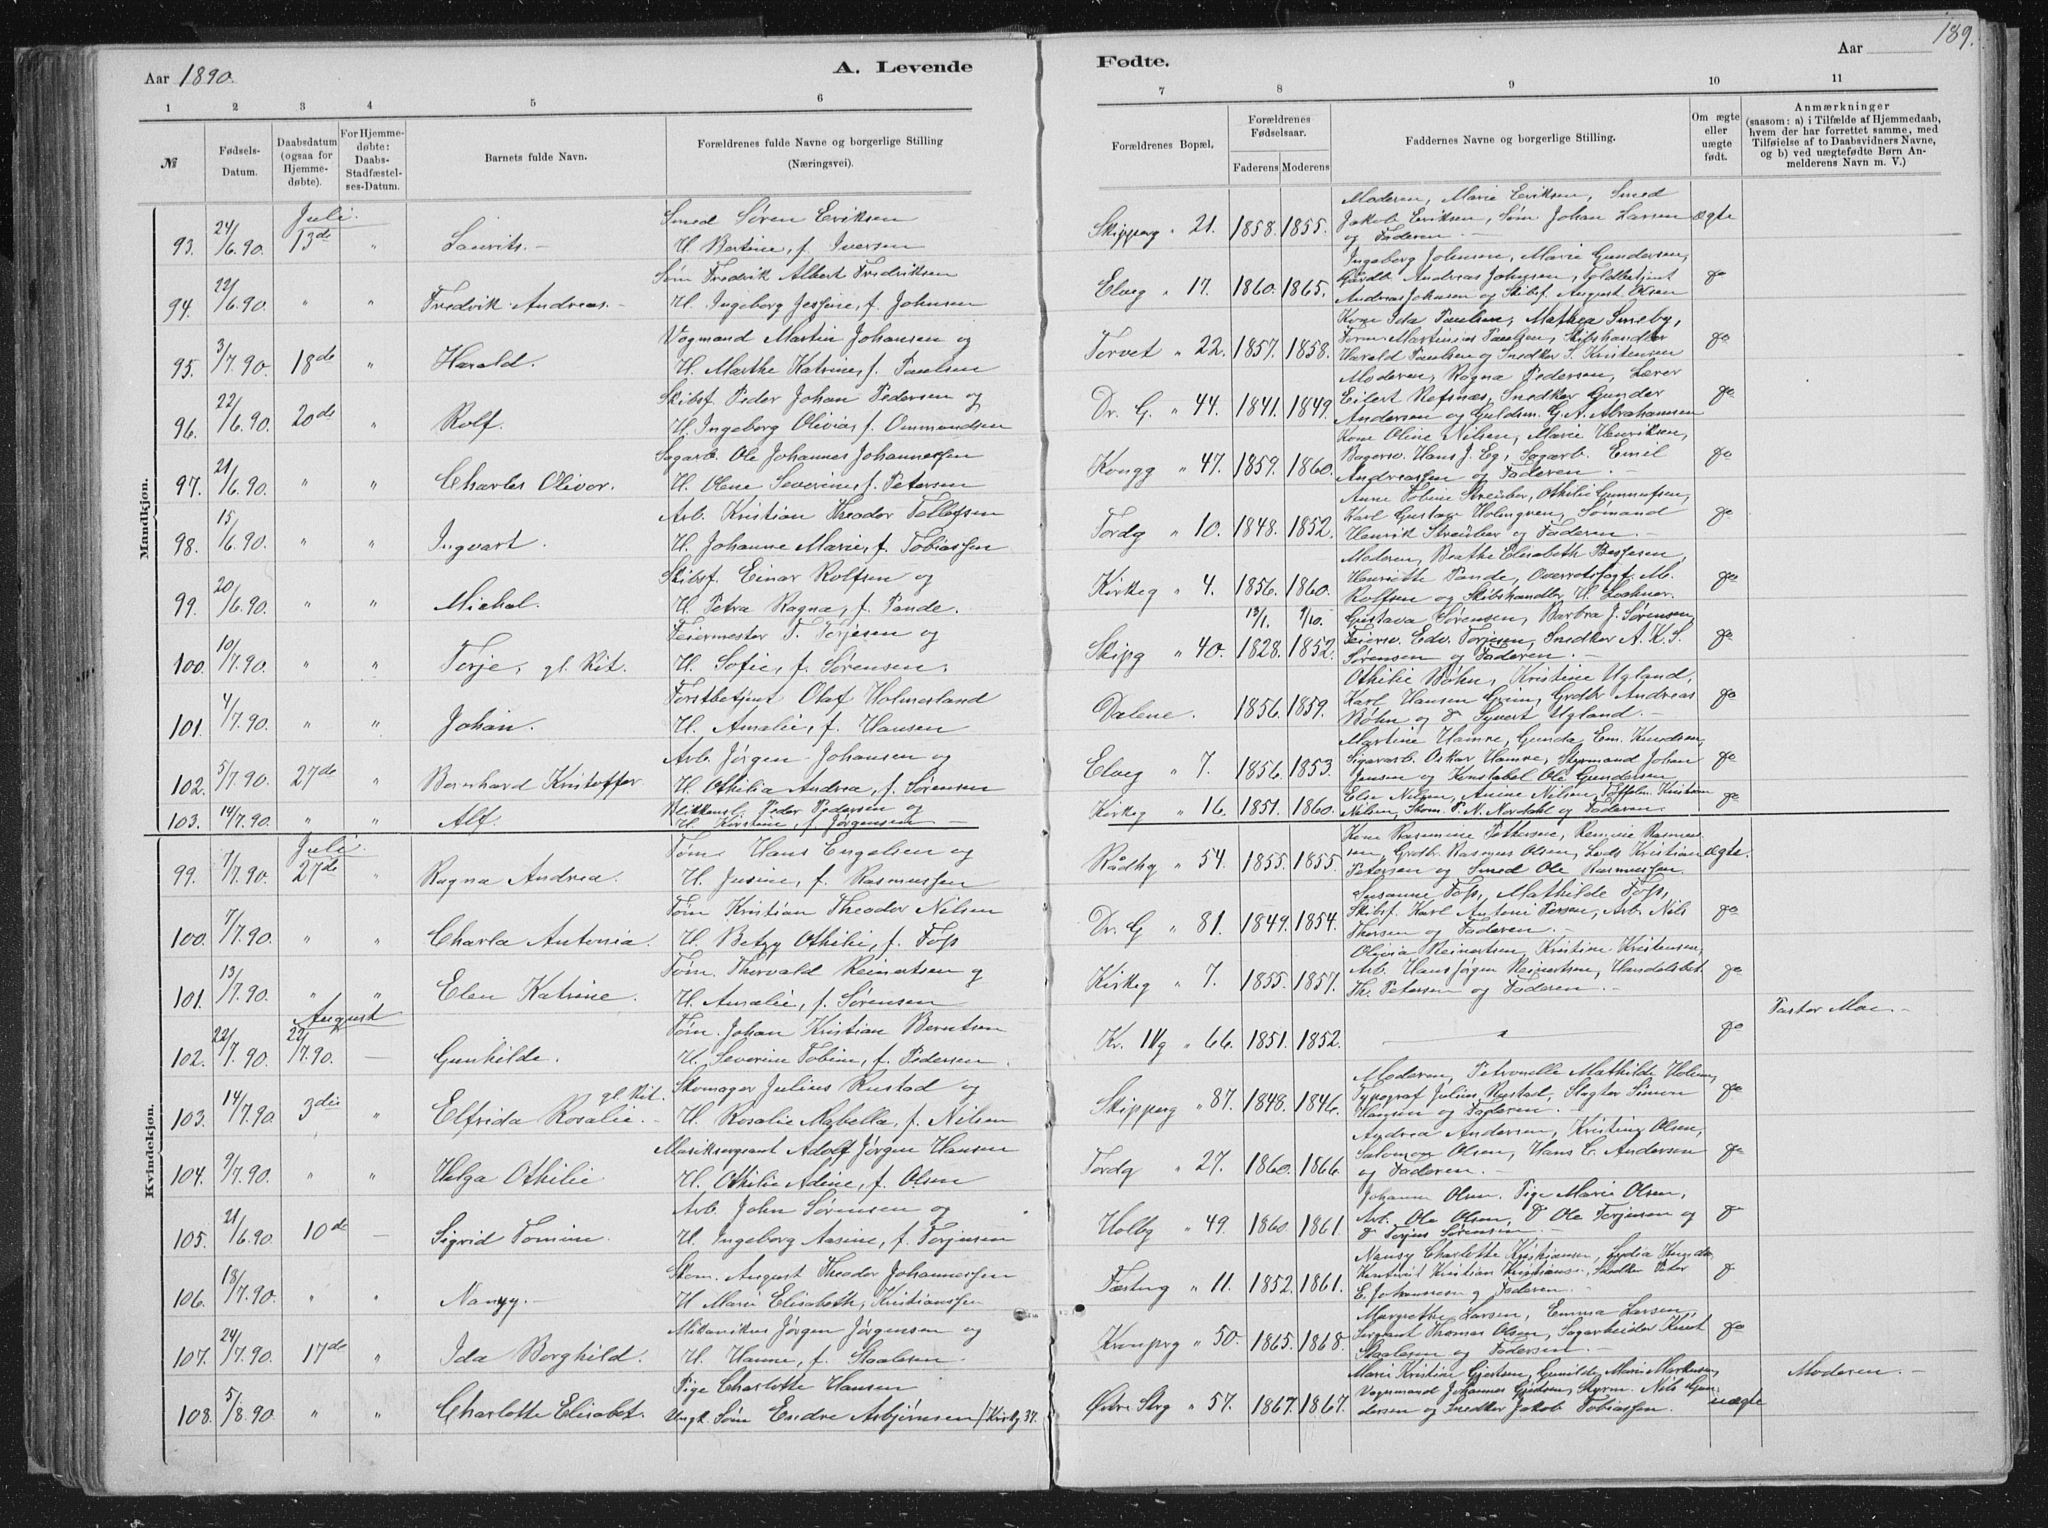 189.
Aar 1890.
A. Levende
Fødte.
Aar
1 2 3 4 5 6 7 8 9 10 11
№
Fødsels-Datum.
Daabsdatum (ogsaa for Hjemmedøbte).
For Hjemmedøbte: Daabs-Stadfæstelses-Datum.
Barnets fulde Navn.
Forældrenes fulde Navne og borgerlige Stilling (Næringsvei).
Forældrenes Bopæl.
Forældrenes Fødselsaar.
Faderens Moderens
Faddernes Navne og borgerlige Stilling.
Om ægte eller uægte født.
Anmærkninger
(saasom: a) i Tilfælde af Hjemmedaab, hvem der har forrettet samme, med Tilføielse af to Daabsvidners Navne, og b) ved uægtefødte Børn Anmelderens Navn m. V.)
Mandkjøn.
Juli.
93. 24/6.90. 13de " Laurits. Smed Søren Eriksen
H. Bertine, f. Iversen
Skipperg " 21. 1858. 1855. Moderen, Marie Eriksen, Smed
Jakob Eriksen, Søm Johan Larsen
og Faderen. ægte
94. 22/6.90. " " Fredrik Andreas. Søm Fredrik Albert Fredriksen
H. Ingeborg Jessine, f. Johnsen
Elveg " 17. 1860. 1865. Ingeborg Johnsen, Marie Gundersen,
Gårdb. Andreas Johnsen, Toldbetjent
Andreas Johnsen og Skibsf. August Olsen do
95. 3/7.90. 18de " Harald. Vogmand Martin Johansen og
H. Marthe Katrine, f. Paulsen
Torvet " 22. 1857. 1858. Kone Ida Paulsen, Mathea Smeby,
Tøm. Martinius Paulsen, Skibshandler
Harald Paulsen og Snedker S. Kristensen do
96. 22/6.90. 20de " Rolf. Skibsf. Peder Johan Pedersen og
H. Ingeborg Olivia, f. Ommundsen
Dr. G. " 44. 1841. 1849. Moderen, Ragna Pedersen, Lærer
Eilert Refsnæs, Snedker Gunder
Andersen og Guldsm. G. A. Abrahamsen do
97. 21/6.90. " " Charles Oliver. Sagarb. Ole Johannes Johannessen
H. Olene Severine, f. Petersen
Kongg " 47. 1859. 1860. Kone Oline Nilsen, Marie Henriksen,
Bagersv. Hans J. Eg, Sagarb. Emil
Andreassen og Faderen. do
98. 15/6.90. " " Ingvart. Arb. Kristian Theodor Tellefsen
H. Johanne Marie, f. Tobiassen
Tordg " 10. 1848. 1852. Anne Tobine Streüber, Othilie Gunnufsen,
Karl Gustav Holmgren, Sømand
Henrik Streüber og Faderen. do
99. 20/6.90. " " Michal. Skibsf. Einar Rolfsen og
H. Petra Ragna, f. Pande.
Kirkeg " 4. 1856. 1860. Moderen, Beathe Elisabeth Bessesen,
Henriette Pande, Overretssagf. M.
Rolfsen og Skibshandler H. Lochner. do
100. 10/7.90. " " Torje, gl. Rit. Feiermester T. Torjesen og
H. Sofie, f. Sørensen.
Skipg " 40. 13/1. 1828. 9/10. 1852. Gustava Sørensen, Barbra J. Sørensen,
Feiersv. Edv. Torjesen, Snedker A. K. S.
Sørensen og Faderen. do
101. 4/7.90. " " Johan. Forstbetjent Olaf Holmesland
H. Amalie, f. Hansen
Dalene. 1856. 1859. Othilie Bøhn, Kristine Ugland,
Karl Hansen Grim, Grdbr Andreas
Bøhn og do Syvert Ugland. do
102. 5/7.90. 27de " Bernhard Kristoffer Arb. Jørgen Johansen og
H. Othilia Andrea, f. Sørensen
Elveg " 7. 1856. 1853. Martine Hamre, Gunda Em. Knudsen,
Sigararb. Oskar Hamre, Styrmand Johan
Jensen og Konstabel Ole Gundersen do
103. 14/7.90. " " Alf. Blikkensl. Peder Pedersen og
H. Kirstine, f. Jørgensen
Kirkeg " 16. 1851. 1860. Elise Nilsen, Anine Nilsen, Kristian
Nilsen, Skom. P. N. Nordahl og Faderen. do
Kvindekjøn.
Juli.
99. 7/7.90. 27de " Ragna Andrea. Tøm. Hans Engelsen og
H. Jusine, f. Rasmussen
Rådhg " 54. 1855. 1855. Kone Rasmine Pettersen, Remine Rasmussen,
Grdbr. Rasmus Olsen, Lods Kristian
Petersen og Smed Ole Rasmussen. ægte.
100. 7/7.90. " " Charla Antonia. Tøm Kristian Theodor Nilsen
H. Betzy Othilie, f. Foss
Dr. G " 81. 1849. 1854. Susanne Foss, Mathilde Foss,
Skibsf. Karl Antoni Persen, Arb. Nils
Thorsen og Faderen. do
101. 13/7.90. " " Elen Katrine. Tøm. Thorvald Reinertsen og
H. Amalie, f. Sørensen
Kirkeg " 7. 1855. 1857. Olivia Reinertsen, Kristine Kristensen,
Arb. Hans Jørgen Reinertsen, Handelsbet.
Th. Petersen og Faderen. do
August
102. 22/7.90. 22/7.90. — Gunhilde. Tøm. Johan Kristian Berntsen
H. Severine Tobine, f. Pedersen.
Kr. IVg " 66. 1851. 1852. do Pastor Moe
103. 14/7.90. 3die " Elfrida Rosalie. gl. Rit. Skomager Julius Rustad og
H. Rosalie Mabella, f. Nilsen
Skipperg " 87. 1848. 1846. Moderen, Petronelle Mathilde Holum,
Typograf Julius Rustad, Slagter Simon
Hansen og Faderen. do
104. 9/7.90. " " Helga Othilie Musiksergeant Adolf Jørgen Hansen
H. Othilie Adine, f. Olsen
Tordg " 27. 1860. 1866. Andrea Andersen, Kristine Olsen,
Salomon Olsen, Hans C. Andersen
og Faderen. do
105. 21/6.90 10de — Sigrid Tomine. Arb. John Sørensen og
H. Ingeborg Aasine, f. Torjusen
Holbg " 49 1860 1861. Johanne Olsen, Pige Marie Olsen,
Arb. Ole Olsen, do Ole Torjusen og
do Torjus Sørensen do
106. 18/7.90. " " Nanny. Skom. August Theodor Johannessen
H Marie Elisabeth, Kristianssen
Fæstng " 11. 1852. 1861. Nansy Charlotte Kristiansen, Lydia
Kristian Kristiansen, Snedker Peter
E. Johannesen og Faderen. do
107. 24/7.90. 17de " Ida Borghild. Mekanikus Jørgen Jørgensen og
H. Hanne, f. Staalesen
Kronprg " 50. 1865. 1868. Margrethe Larsen, Emma Larsen,
Sergeant Thomas Olsen, Sagarbeider Knut
Staalesen og Faderen. do
108. 5/8.90. " " Charlotte Elisabet. Pige Charlotte Hansen
Ungk. Søm Endre Asbjørnsen / Kirkeg 37.
Østre Strg " 57. 1867. 1867. Marie Kristine Gjertsen, Gunilde Marie Markussen,
Vognmand Johannes Gjertsen, Styrm. Nils Gundersen
og Snedker Jakob Tobiassen. uægte Moderen.